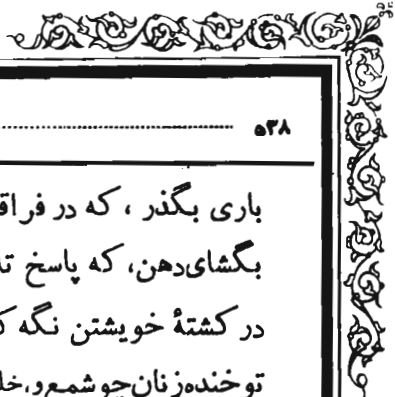 ۵۳۸
باری بگذر، که در فراق
بگشای دهن، که پاسخ
در کشتهٔ خویشتن نگه
تو خنده زنان چو شمع و،